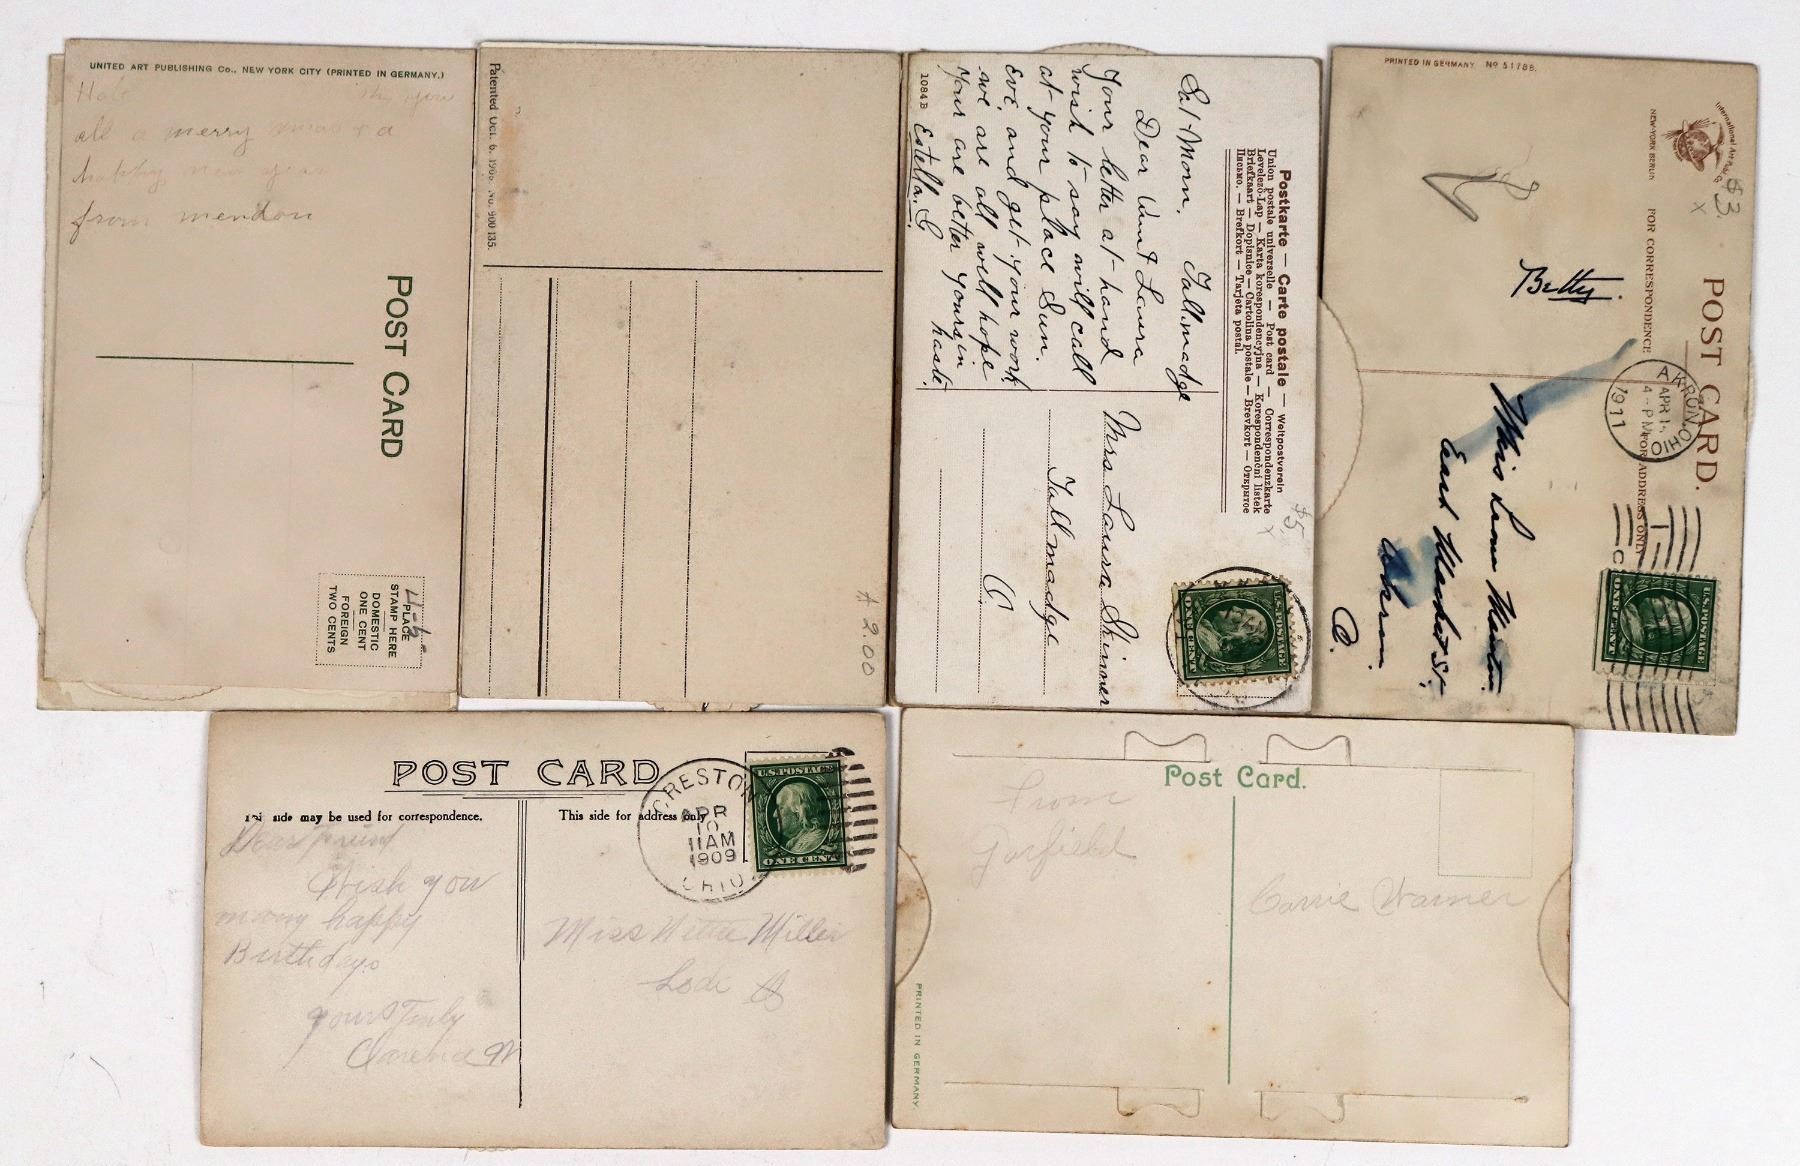 UNITED ART PUBLISHING Co., NEW YORK CITY (PRINTED IN GERMANY.)
you
all a merry xmas & a
happy new year
from mendon
POST CARD
PLACE
STAMP HERE
DOMESTIC
ONE CENT
FOREIGN
TWO CENTS
Patented Oct. 6. 1909. No. 900135.
2.00
1084 B
Postkarte — Carte postale — Weltpostverein
Union postale universelle — Post card — Correspondenzkarte
Levelező-Lap — Karta korespondencyjna — Korespondenční lístek
Briefkaart — Dopisnice — Cartolina postale — Brevkort — Открытое
Письмо. — Brefkort — Tarjeta postal.
$5
Sat Morn. Tallmadge
Dear Aunt Laura
Your letter at hand
wish to say will call
at your place Sun.
Eve, and get your work
we are all well hope
your are better yours in
haste,
Estella. G
Mrs Laura Skinner
Tallmadge
O.
U.S. POSTAGE
ONE CENT
PRINTED IN GERMANY No 51788.
International Art
NEW-YORK BERLIN
$3.
POST CARD.
FOR CORRESPONDENCE
FOR ADDRESS ONLY
Betty.
AKRON, OHIO
APR
4-PM
1911
East Market St,
Akron
O.
U.S. POSTAGE
ONE CENT
POST CARD
side may be used for correspondence.
This side for address only
CRESTON
APR
10
11 AM
1909
OHIO
U.S. POSTAGE
ONE CENT
Dear Friend
Wish you
many happy
Birthdays
yours Truly
Clarence M
Miss Nettie Miller
Lodi O
Post Card.
From
Garfield
Carrie Warner
PRINTED IN GERMANY.